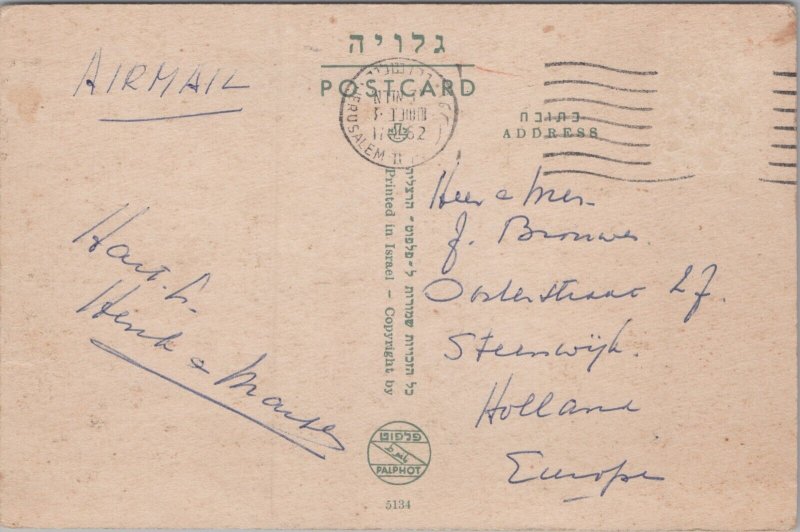 גלויה
POSTCARD
AIRMAIL
JERUSALEM
כתובת
ADDRESS
Heer & Mev.
J. Brouwer
Oosterstraat 27.
Steenwijk.
Holland
Europe
Hart. Gr.
Henk &
כל הזכויות שמורות ל-פלפוט - הרצליה
Printed in Israel - Copyright by
פלפוט
PALPHOT
5134